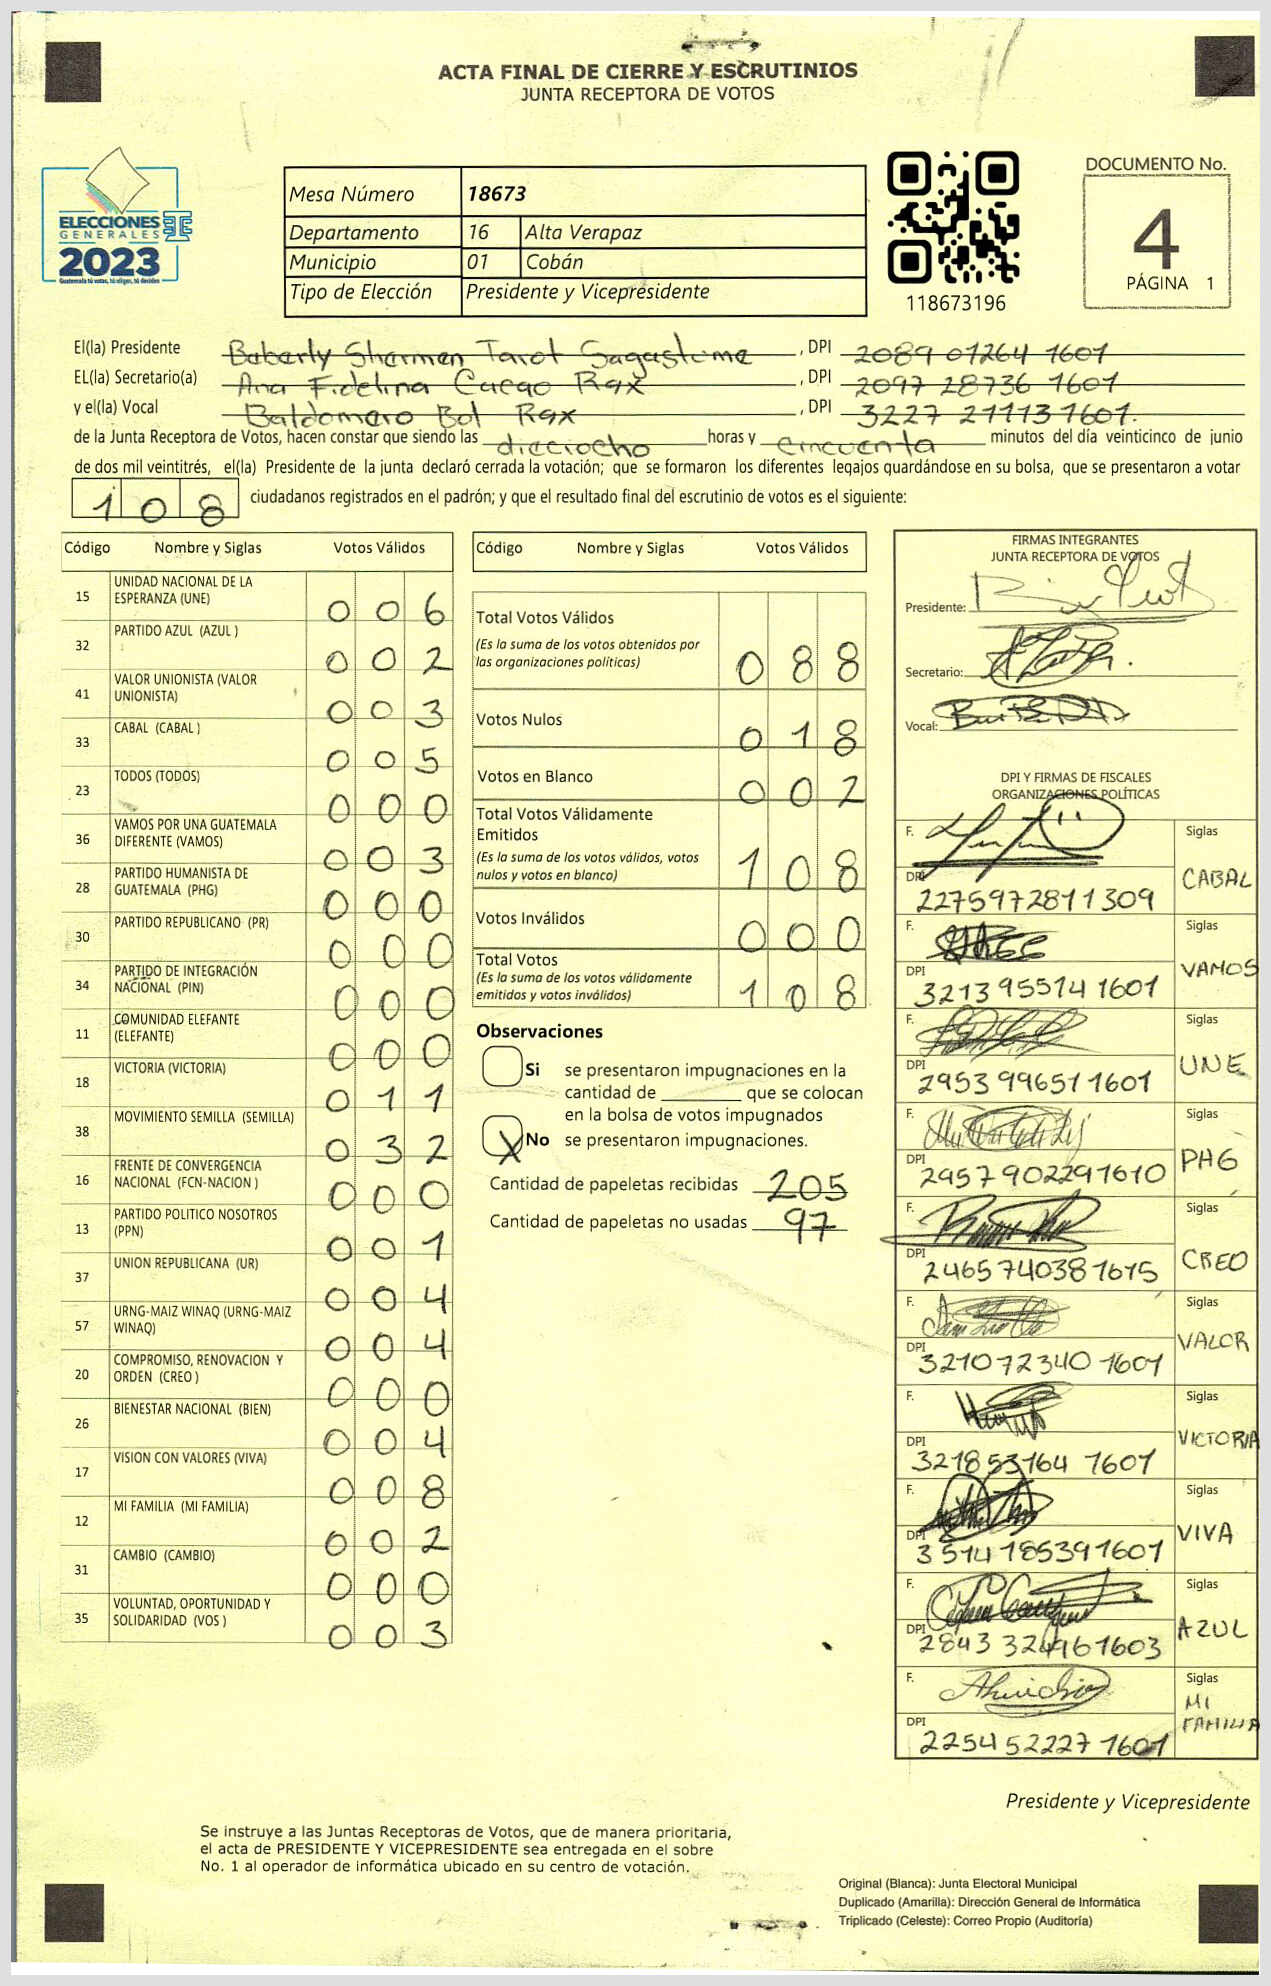 ACTA FINAL DE CIERRE Y ESCRUTINIOS
JUNTA RECEPTORA DE VOTOS
ELECCIONES
GENERALES
2023
Guatemala tú votas, tú eliges, tú decides
Mesa Número 18673
Departamento 16 Alta Verapaz
Municipio 01 Cobán
Tipo de Elección Presidente y Vicepresidente
118673196
DOCUMENTO No.
4
PÁGINA 1
El(la) Presidente Beberly Sharmen Tarot Sagastume , DPI 2089 01264 1601
EL(la) Secretario(a) Ana Fidelina Cacao Rax , DPI 2097 28736 1601
y el(la) Vocal Baldomero Bol Rax , DPI 3227 21113 1601.
de la Junta Receptora de Votos, hacen constar que siendo las dieciocho horas y cincuenta minutos del día veinticinco de junio
de dos mil veintitrés, el(la) Presidente de la junta declaró cerrada la votación; que se formaron los diferentes legajos guardándose en su bolsa, que se presentaron a votar
108 ciudadanos registrados en el padrón; y que el resultado final del escrutinio de votos es el siguiente:
Código Nombre y Siglas Votos Válidos
15 UNIDAD NACIONAL DE LA ESPERANZA (UNE) 006
32 PARTIDO AZUL (AZUL ) 002
41 VALOR UNIONISTA (VALOR UNIONISTA) 003
33 CABAL (CABAL ) 005
23 TODOS (TODOS) 000
36 VAMOS POR UNA GUATEMALA DIFERENTE (VAMOS) 003
28 PARTIDO HUMANISTA DE GUATEMALA (PHG) 000
30 PARTIDO REPUBLICANO (PR) 000
34 PARTIDO DE INTEGRACIÓN NACIONAL (PIN) 000
11 COMUNIDAD ELEFANTE (ELEFANTE) 000
18 VICTORIA (VICTORIA) 011
38 MOVIMIENTO SEMILLA (SEMILLA) 032
16 FRENTE DE CONVERGENCIA NACIONAL (FCN-NACION ) 000
13 PARTIDO POLITICO NOSOTROS (PPN) 001
37 UNION REPUBLICANA (UR) 004
57 URNG-MAIZ WINAQ (URNG-MAIZ WINAQ) 004
20 COMPROMISO, RENOVACION Y ORDEN (CREO ) 000
26 BIENESTAR NACIONAL (BIEN) 004
17 VISION CON VALORES (VIVA) 008
12 MI FAMILIA (MI FAMILIA) 002
31 CAMBIO (CAMBIO) 000
35 VOLUNTAD, OPORTUNIDAD Y SOLIDARIDAD (VOS ) 003
Código Nombre y Siglas Votos Válidos
Total Votos Válidos
(Es la suma de los votos obtenidos por
las organizaciones políticas) 088
Votos Nulos 018
Votos en Blanco 002
Total Votos Válidamente
Emitidos
(Es la suma de los votos válidos, votos
nulos y votos en blanco) 108
Votos Inválidos 000
Total Votos
(Es la suma de los votos válidamente
emitidos y votos inválidos) 108
Observaciones
Si se presentaron impugnaciones en la
cantidad de ________ que se colocan
en la bolsa de votos impugnados
X No se presentaron impugnaciones.
Cantidad de papeletas recibidas 205
Cantidad de papeletas no usadas 97
FIRMAS INTEGRANTES
JUNTA RECEPTORA DE VOTOS
Presidente:
Secretario:
Vocal:
DPI Y FIRMAS DE FISCALES
ORGANIZACIONES POLÍTICAS
F. Siglas
DPI 2275972811309 CABAL
F. Siglas
DPI 3213955141601 VAMOS
F. Siglas
DPI 2953996511601 UNE
F. Siglas
DPI 2957902291610 PHG
F. Siglas
DPI 2465740381615 CREO
F. Siglas
DPI 321072340 1601 VALOR
F. Siglas
DPI 321853164 1601 VICTORIA
F. Siglas
DPI 3514185391601 VIVA
F. Siglas
DPI 2843324961603 AZUL
F. Siglas
DPI 2254522271601 MI FAMILIA
Presidente y Vicepresidente
Se instruye a las Juntas Receptoras de Votos, que de manera prioritaria,
el acta de PRESIDENTE Y VICEPRESIDENTE sea entregada en el sobre
No. 1 al operador de informática ubicado en su centro de votación.
Original (Blanca): Junta Electoral Municipal
Duplicado (Amarilla): Dirección General de Informática
Triplicado (Celeste): Correo Propio (Auditoría)